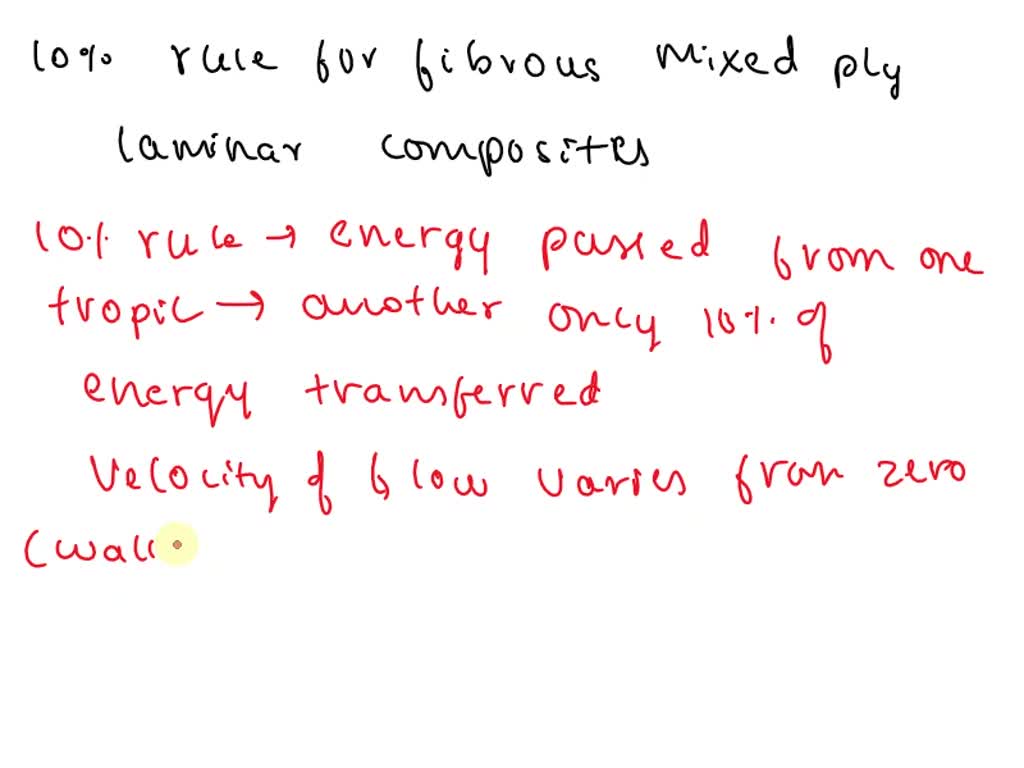 10% rule for fibrous mixed ply
laminar composites
10% rule → energy passed from one
tropic → another only 10% of
energy transferred
velocity of flow varies from zero
(wall